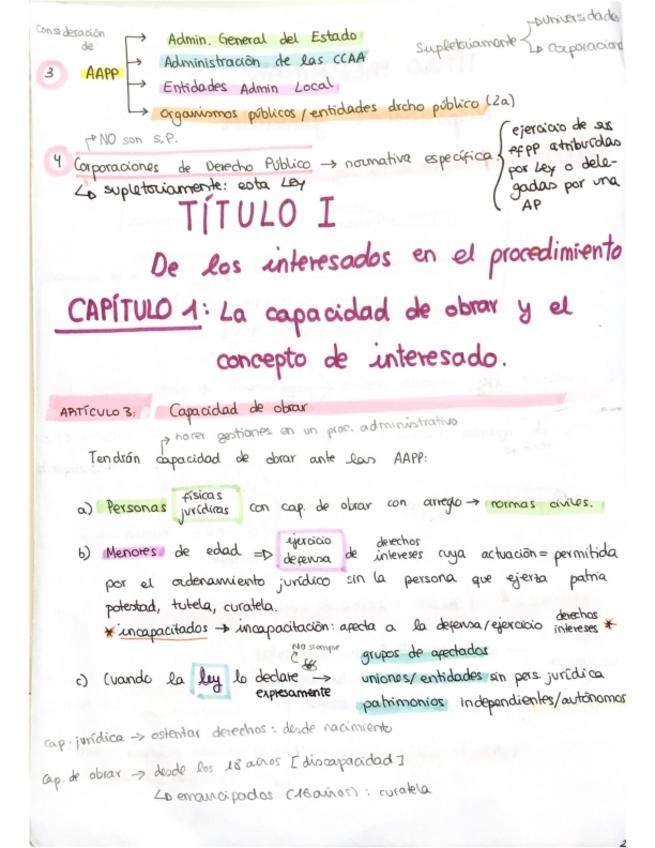 Consideración de
3 AAPP → Admin. General del Estado
→ Administración de las CCAA
→ Entidades Admin Local
→ Organismos públicos/entidades drcho público (2a)
supletoriamente → universidades
↳ Corporacion
↱ NO son S.P.
4 Corporaciones de Derecho Público → normativa específica { ejercicio de sus
ffPP atribuídas
por Ley o dele-
gadas por una
AP
↳ supletoriamente: esta Ley
TÍTULO I
De los interesados en el procedimiento
CAPÍTULO 1: La capacidad de obrar y el
concepto de interesado.
ARTÍCULO 3: Capacidad de obrar
↱ hacer gestiones en un proc. administrativo
Tendrán capacidad de obrar ante las AAPP:
a) Personas físicas jurídicas con cap. de obrar con arreglo → normas civiles.
b) Menores de edad ⇒ ejercicio defensa de derechos intereses cuya actuación = permitida
por el ordenamiento jurídico sin la persona que ejerza patria
potestad, tutela, curatela.
* incapacitados → incapacitación: afecta a la defensa/ejercicio derechos intereses *
No siempre
c) Cuando la ley lo declare expresamente → grupos de afectados
uniones/entidades sin pers. jurídica
patrimonios independientes/autónomos
cap. jurídica → ostentar derechos: desde nacimiento
cap. de obrar → desde los 18 años [discapacidad]
↳ emancipados (16 años): curatela
2